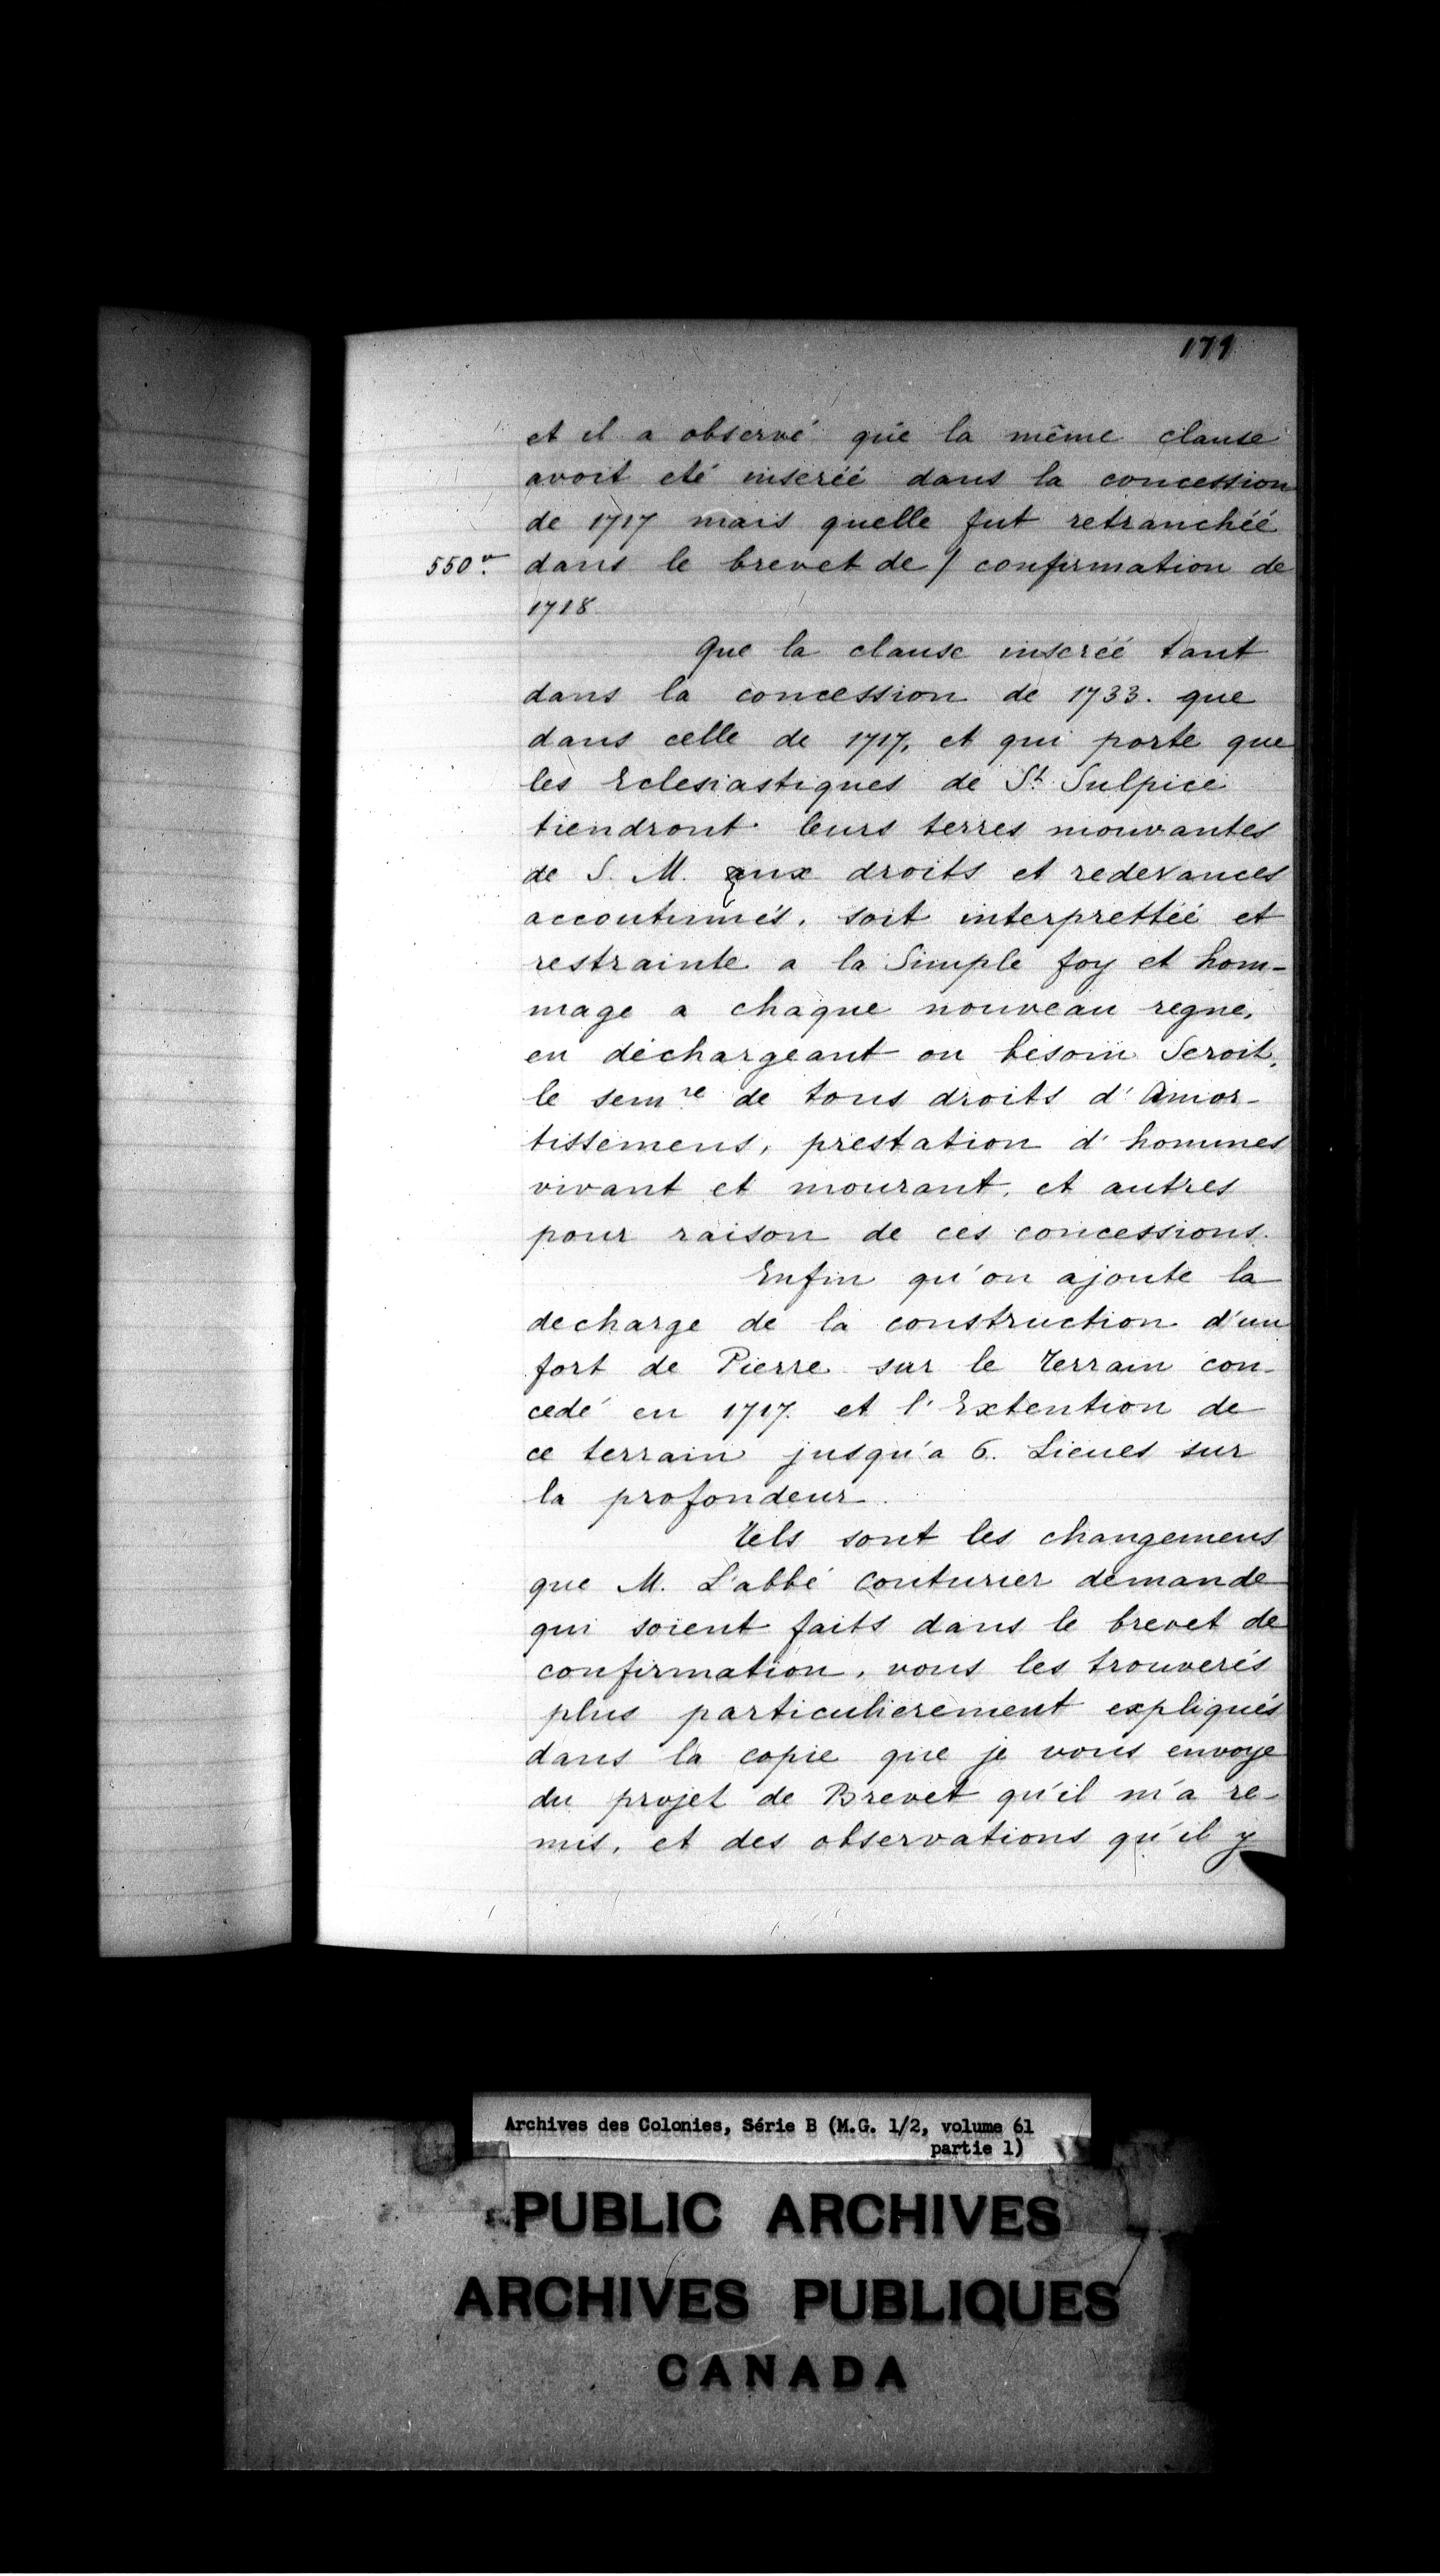 171
et il a observé que la même clause
avoit eté inseréé dans la concession
de 1717 mais quelle fut retranchéé
550 v. dans le brevet de / confirmation de
1718
Que la clause inseréé tant
dans la concession de 1733. que
dans celle de 1717, et qui porte que
les Eclesiastiques de St. Sulpice
tiendront leurs terres mouvantes
de S. M. aux droits et redevances
accoutumés, soit interprettéé et
restrainte a la Simple foy et hom-
mage a chaque nouveau regne,
en déchargeant ou besoin Seroit,
le semre de tous droits d'Amor-
tissemens, prestation d'hommes
vivant et mourant, et autres
pour raison de ces concessions.
Enfin qu'on ajoute la
decharge de la construction d'un
fort de Pierre sur le terrain con-
cedé en 1717. et l'Extention de
ce terrain jusqu'a 6. Lieues sur
la profondeur.
Tels sont les changemens
que M. L'abbé Couturier demande
qui soient faits dans le brevet de
confirmation, vous les trouverés
plus particulierement expliqués
dans la copie que je vous envoye
du projet de Brevet qu'il m'a re-
mis, et des observations qu'il y
Archives des Colonies, Série B (M.G. 1/2, volume 61
partie 1)
PUBLIC ARCHIVES
ARCHIVES PUBLIQUES
CANADA